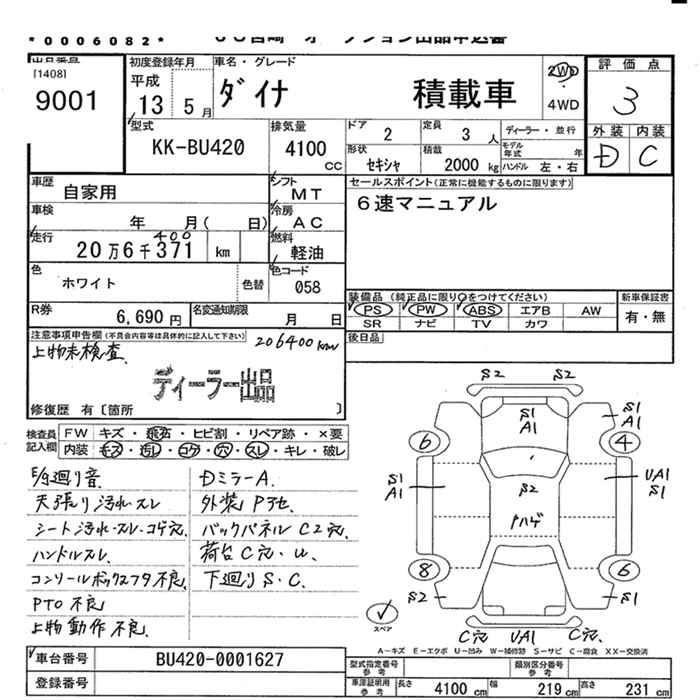 *0006082*
[1408]
9001
初度登録年月
平成
13 5月
車名・グレード
ダイナ 積載車
2WD
4WD
評価点
3
外装 内装
D C
型式
KK-BU420
排気量
4100
CC
ドア 2
定員 3人
ディーラー・並行
モデル年式 年
形状 セキシャ
積載 2000 kg
ハンドル 左・右
車歴
自家用
シフト
MT
セールスポイント(正常に機能するものに限ります)
6速マニュアル
車検
年 月( 日)
冷房
AC
走行
400
20万6千371 km
燃料
軽油
色
ホワイト
色替
色コード
058
R券
6,690円
名変通知期限
月 日
装備品(純正品に限り○をつけてください)
PS PW ABS エアB AW
SR ナビ TV カワ
新車保証書
有・無
後日品
注意事項申告欄(不具合内容等は具体的に記入して下さい)
206400km
上物未検査
ディーラー出品
修復歴 有〔箇所 〕
検査員記入欄
FW キズ・飛石・ヒビ割・リペア跡・×要
内装 キズ・汚レ・コゲ・穴・スレ・キレ・破レ
E/g廻り音
天張り汚レ・スレ
シート汚レ・スレ・コゲ穴
ハンドルスレ
コンソールボックスフタ不良
PTO不良
上物動作不良
DミラーA.
外装Pアセ
バックパネルC2穴
荷台C穴・U
下廻りS・C.
S2 S2
S1
A1
S1
A1
6 4
S1
A1
UA1
S1
S2
ハゲ
8 6
S2 S1
スペア
C穴 UA1 C穴
A-キズ E-エクボ U-凹み W-補修跡 S-サビ C-腐食 XX-交換済
車台番号
BU420-0001627
登録番号
型式指定番号
参考
類別区分番号
参考
車庫証明用
参考
長さ 4100 cm
幅 219 cm
高さ 231 cm